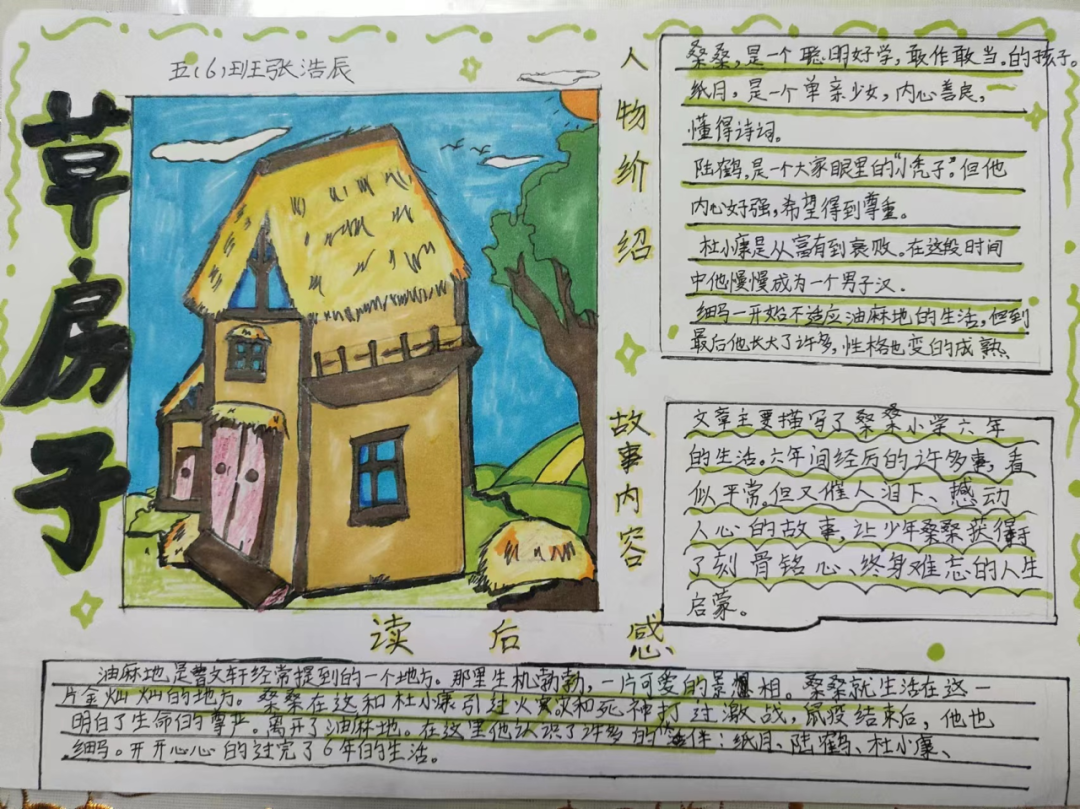 草房子
五(6)班张浩辰
人物价绍
桑桑,是一个聪明好学,敢作敢当。的孩子。
纸月,是一个单亲少女,内心善良,
懂得诗词。
陆鹤,是一个大家眼里的“小秃子”。但他
内心好强,希望得到尊重。
杜小康是从富有到衰败。在这段时间
中他慢慢成为一个男子汉.
细马一开始不适应油麻地的生活,但到
最后他长大了许多,性格也变的成熟、
故事内容
文章主要描写了桑桑小学六年
的生活。六年间经历的许多事,看
似平常。但又催人泪下、撼动
人心的故事,让少年桑桑获得
了刻骨铭心、终身难忘的人生
启蒙。
读后感
油麻地是曹文轩经常提到的一个地方。那里生机勃勃,一片可爱的景相。桑桑就生活在这一
片金灿灿的地方。桑桑在这和杜小康引过火灾和死神打过激战,鼠疫结束后,他也
明白了生命的尊严。离开了油麻地。在这里他认识了许多的伙伴:纸月、陆鹤、杜小康、
细马。开开心心的过完了6年的生活。